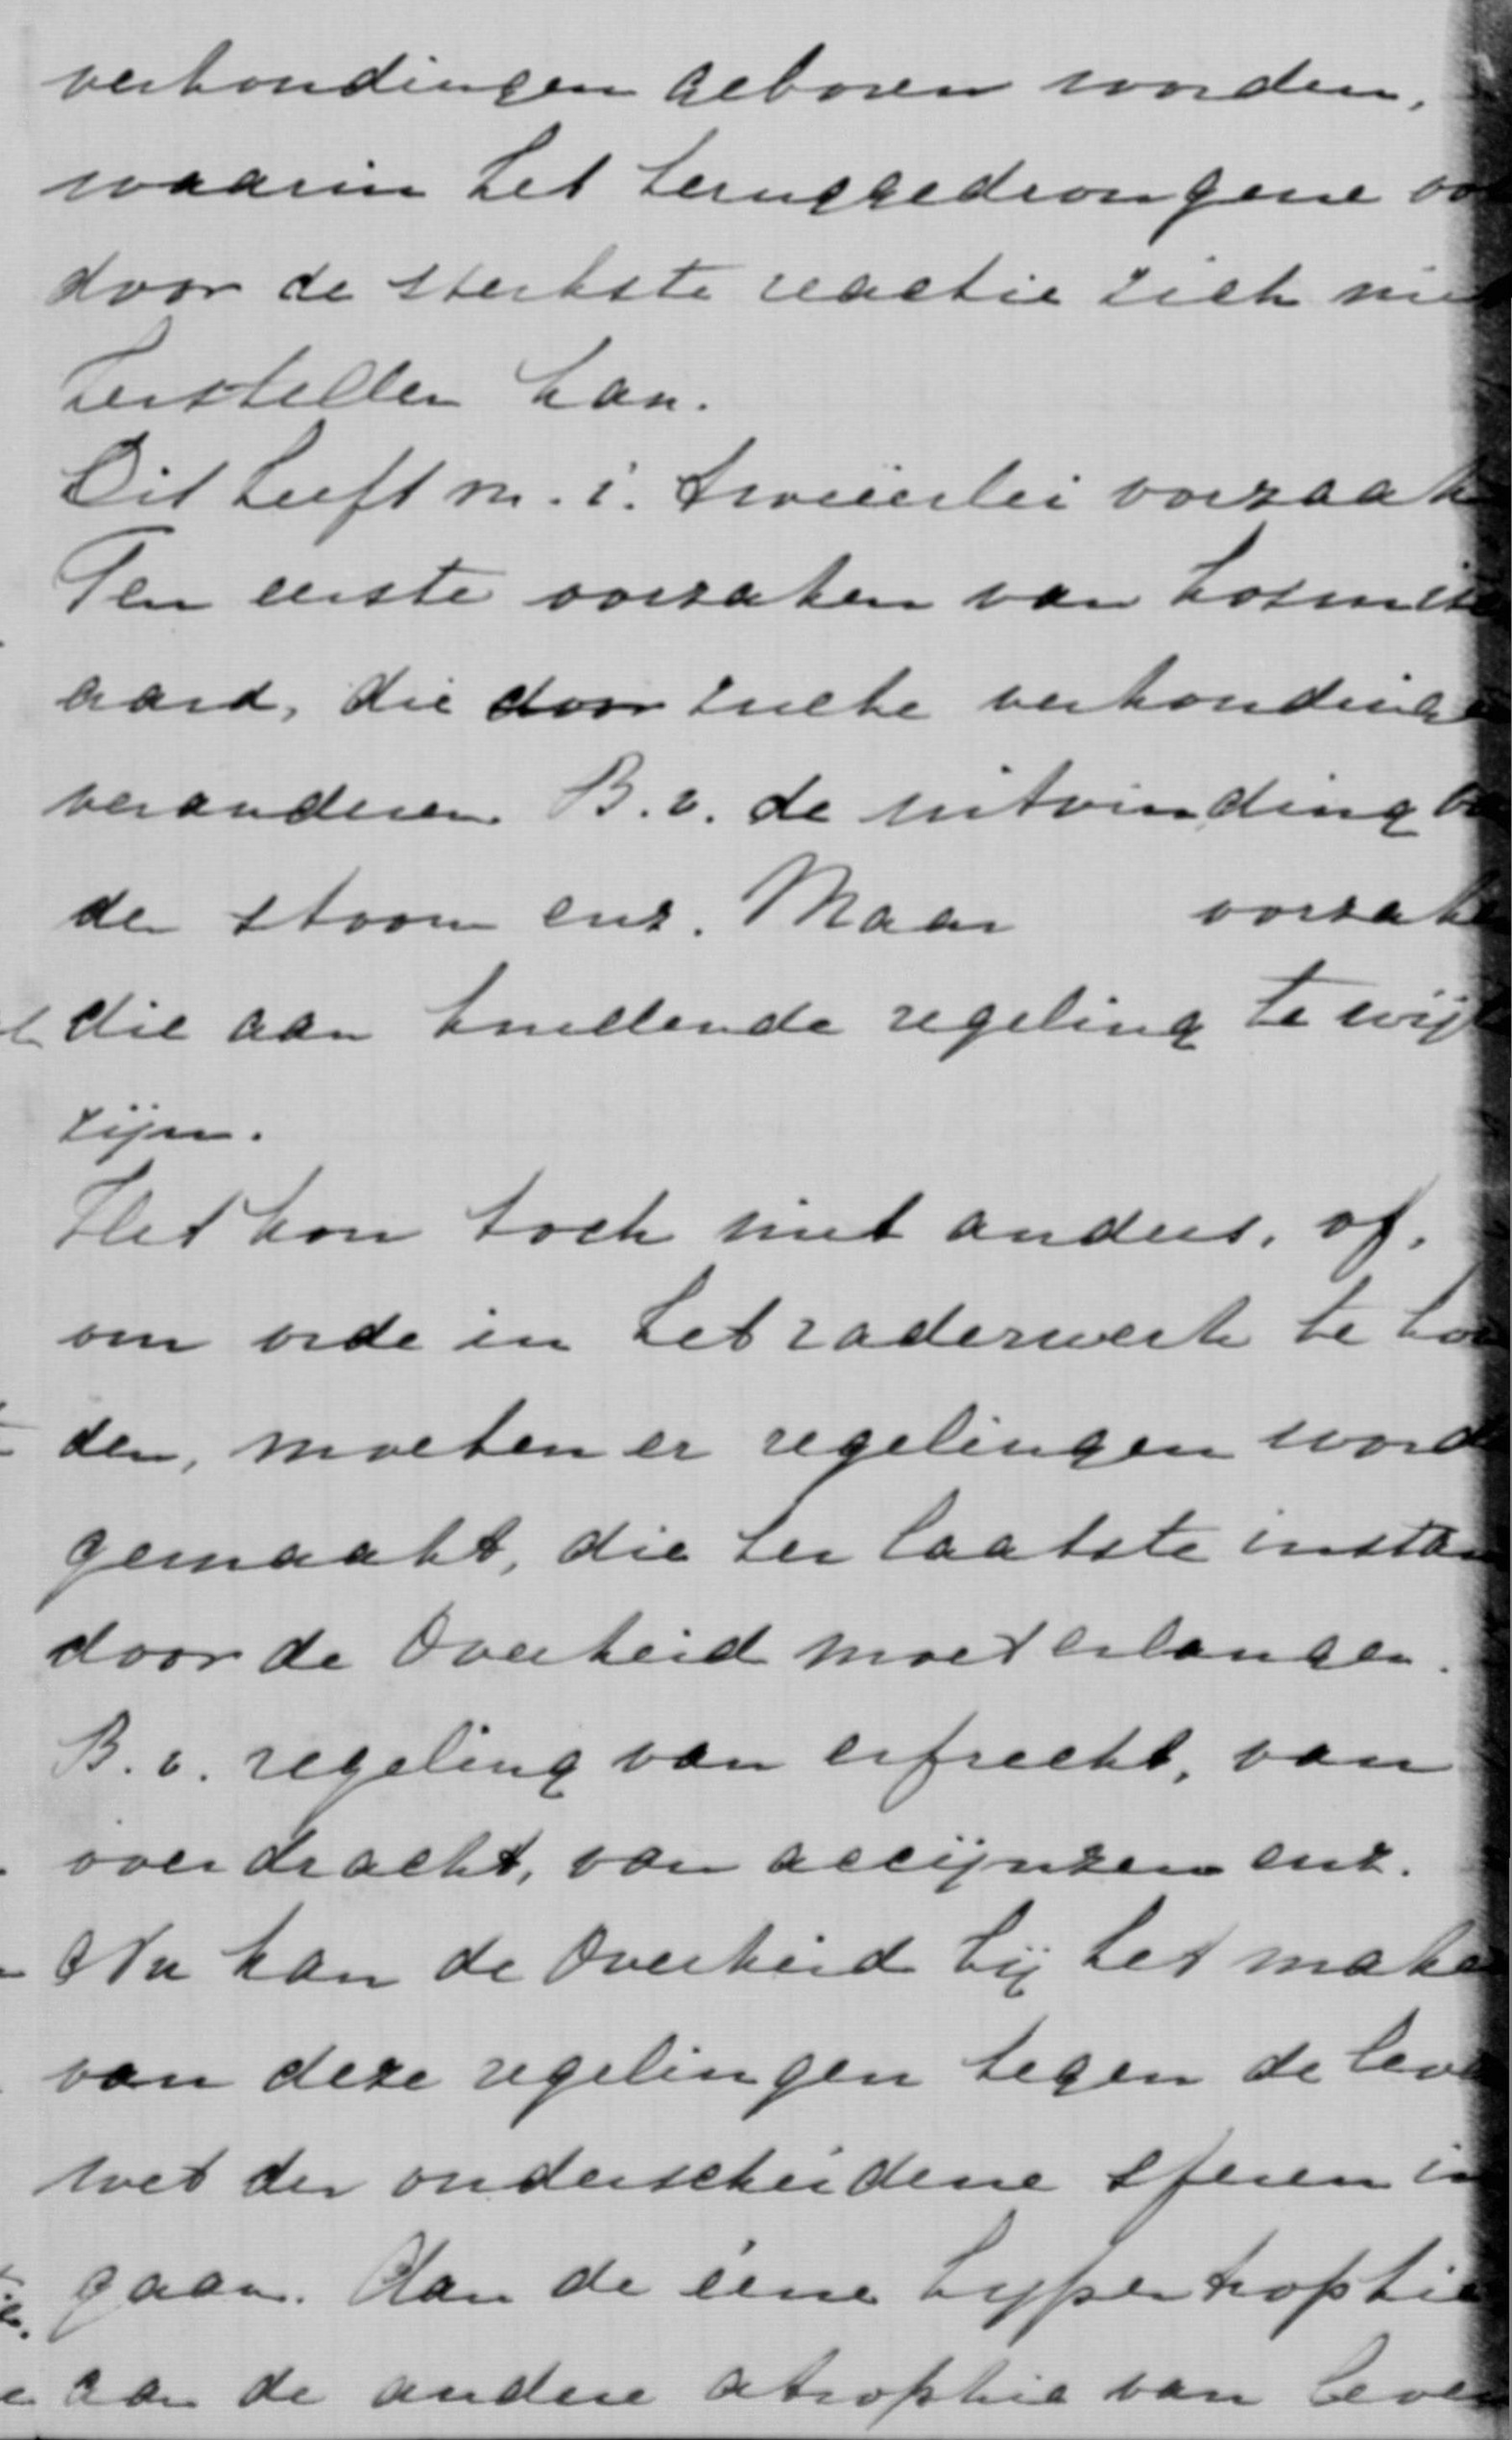 verhoudingen geboren worden,
waarin het teruggedrongene
door de sterkste reactie zich
herstellen kan.
Dit heeft m. i. tweeërlei oorzaak
Ten eerste oorzaken van
aard, die door zulke
veranderen. B.v. de uitvinding
der stoom enz. Maar
die aan knellende regeling te
zijn.
Het kon toch niet anders, of,
om orde in het raderwerk te hou
den, moeten er regelingen
gemaakt, die ter laatste
door de Overheid moet erlangen.
B.v. regeling van erfrecht, van
overdracht, van accijnzen enz.
Nu kan de Overheid bij het
van deze regelingen tegen de
wet der onderscheidene sferen in
gaan. Aan de ééne hypertrophie
aan de andere atrophie van